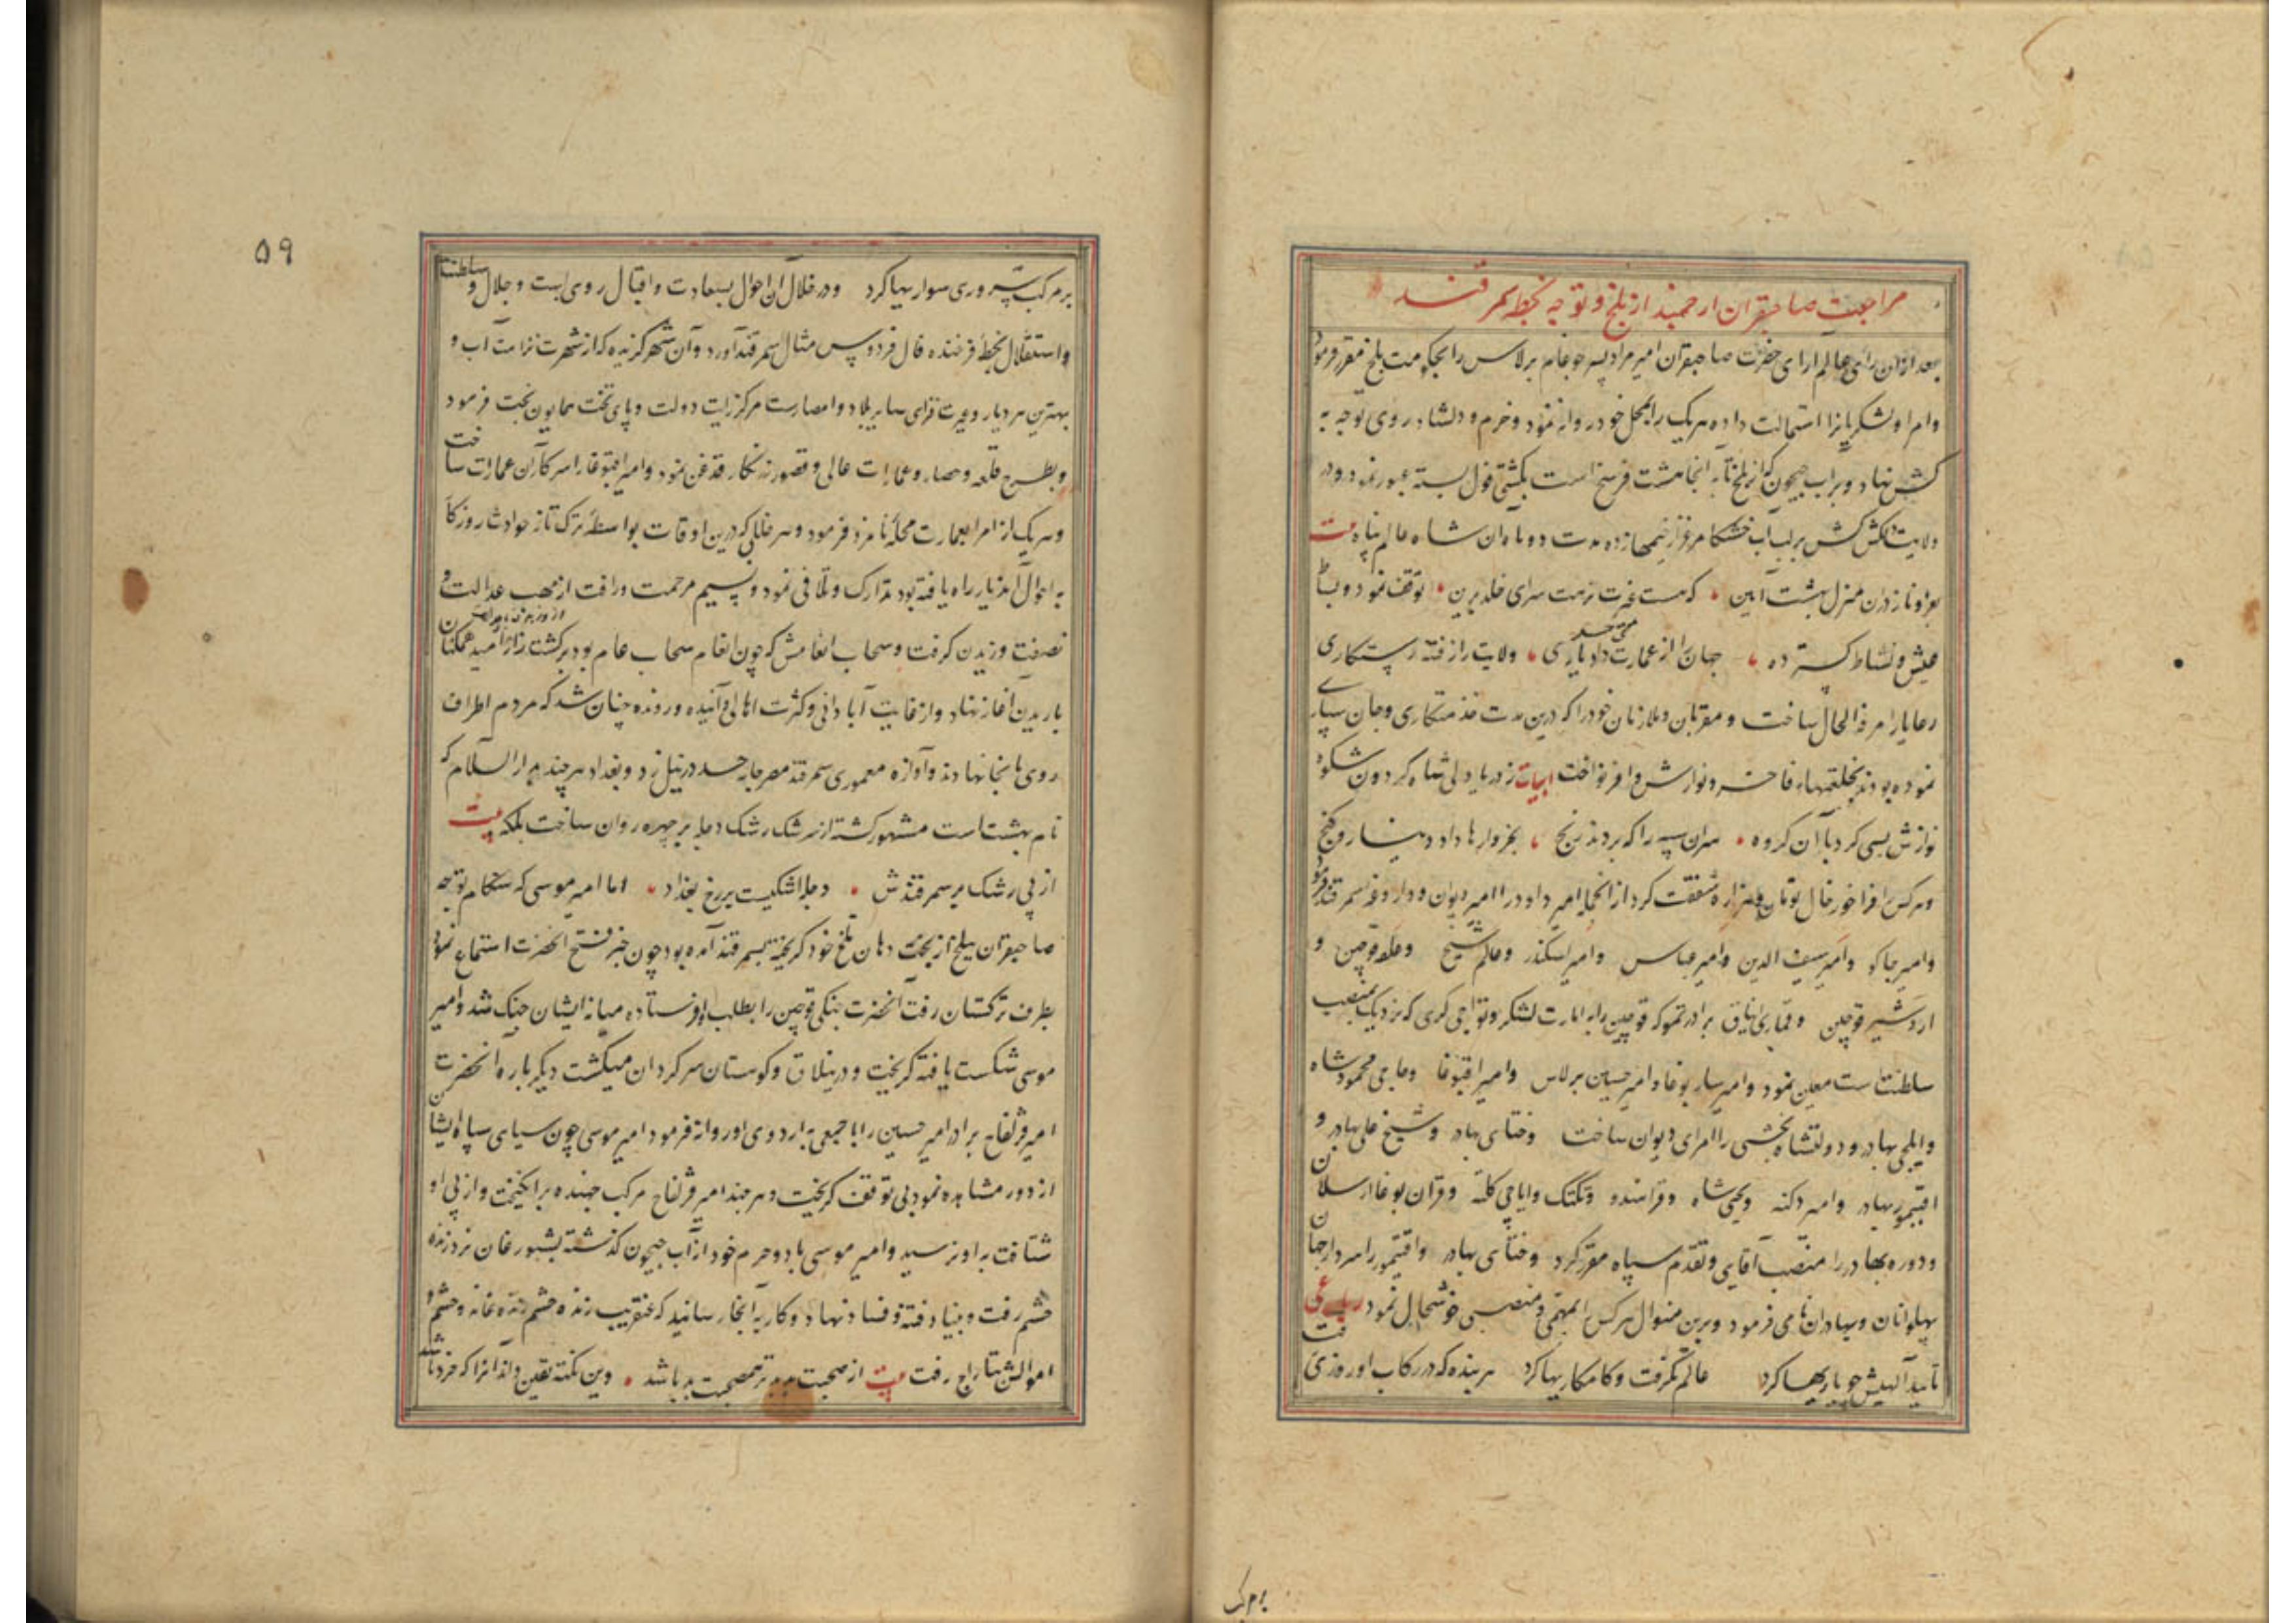 مراجعت صاحبقران ارجمند از بلخ و توجه بخطه سمرقند
بعد ازان رای عالم ارای حضرت صاحبقران امیر مراد پسر جوغام برلاس را بحکومت بلخ مقرر فرمود
وامرا ولشکریانرا استمالت داده هریک را بمحل خود روانه نمود وخرم ودلشاد روی توجه به
کش نهاد وبراب جیحون که از بلخ تا به انجا هشت فرسخ است بکشتی قول بسته عبور نمود ودر
ولایت دلکش کش برلب اب خشکا مرغزار خیمها زده مدت دو ماه ان شاه عالم پناه بیت
بعز وناز دران منزل بهشت آیین که هست غیرت نزهت سرای خلد برین توقف نمود وبساط
عیش ونشاط گسترده جهان را از عمارت داد یاری ولایت را ز فتنه رستگاری
رعایا را مرفه الحال ساخت ومقربان وملازمان خود را که درین مدت خدمتکاری وجان سپاری
نموده بودند بخلعتهاء فاخر ونوازش وافر نواخت ابیات ز دریا دلی شاه گردون شکوه
نوازش بسی کرد با آن گروه سران سپه را که بردند رنج بخروارها داد دینار وگنج
وهرکس را فراخور حال تومان وهزاره شفقت کرد از انجمله امیر داود را امیر دیوان وداروغه سمرقند فرمود
وامیر جاکو وامیر سیف الدین وامیر عباس وامیر اسکندر وعالم شیخ وعلفه قوچین و
اردشیر قوچین وقماری ایناق برادر تموکه قوچین را به امارت لشکر وتواجی گری که نزدیک بمنصب
سلطنت است معین نمود وامیر سار بوغا وامیر حسین برلاس وامیر اقبوغا وحاجی محمود شاه
وایلچی بهادر ودولتشاه بخشی را امرای دیوان ساخت وختای بهادر وشیخ علی بهادر و
اقتیمور بهادر وامیر دکنه ویحیی شاه وقرا هندو وتکتک وایاجی کلته وقران بوغا ارسلان
ودوره بهادر را منصب آقایی وتقدم سپاه مقرر کرد وختای بهادر واقتیمور را سردار جمان
پهلوانان وبهادران نامی فرمود وبرین منوال هرکس را بمهمی ومنصبی خوشحال نمود رباعی
تایید آلهیش چو یاریها کرد عالم بگرفت وکامکاریها کرد هر بنده که در رکاب او روزی رفت
برمرکب
برمرکب سروری سواریها کرد ودر خلال آن احوال بسعادت واقبال روی ابهت وجلال وسلطنت
واستقلال بخطه فرخنده فال فردوس مثال سمرقند آورد وآن شهر گزیده که از شهرت نزاهت آب و
بهترین هر دیار وغیرت فزای سایر بلاد وامصارست مرکز رایت دولت وپای تخت همایون بخت فرمود
وبطرح قلعه وحصار وعمارات عالی وقصور زرنگار قدغن نمود وامیر اقبوغا را سرکار آن عمارات ساخت
وهریک از امرا بعمارت محله نامزد فرمود وهر خللی که درین اوقات بواسطه ترک تاز حوادث روزگار
به احوال آندیار راه یافته بود تدارک وتلافی نمود ونسیم مرحمت ورافت از مهب عدالت و
نصفت وزیدن گرفت وسحاب انعامش که چون انعام سحاب عام بود بر کشت زار امید همکنان
باریدن آغاز نهاد واز غایت آبادانی وکثرت اهالی وآینده ورونده چنان شد که مردم اطراف
روی بانجا نهادند وآوازه معموری سمرقند مصر جامه حسد در نیل زد وبغداد هرچند بدار السلام که
نام بهشت است مشهور گشته از سرشک رشک دجله بر چهره روان ساخت بلکه بیت
از پی رشک بر سمرقندش دجله اشکیست بر رخ بغداد اما امیر موسی که هنگام توجه
صاحبقران ببلخ از بخت دهان تلخ خود گریخته بسمرقند آمده بود چون خبر فتح انحضرت استماع نمود
بطرف ترکستان رفت آنحضرت جنگی قوچین را بطلب او فرستاده میانه ایشان جنگ شد وامیر
موسی شکست یافته گریخت ودر ییلاق وکوهستان سرگردان میگشت دیگر باره انحضرت
امیر قرلغاج برادر امیر حسین را با جمعی به اردوی او روانه فرمود امیر موسی چون سیاهی سپاه ایشان
از دور مشاهده نمود بی توقف گریخت وهرچند امیر قرلغاج مرکب جهنده برانگیخت واز پی او
شتافت به او نرسید وامیر موسی با دو حرم خود از آب جیحون گذشته بشبورغان نزد زنده
حشم رفت وبنیاد فتنه وفساد نهاد وکار به انجا رسانید که عنقریب زنده حشم را خانه وحشم و
اموالش بتاراج رفت بیت از صحبت بد بتر صحبت بد باشد وین نکته یقین داند انرا که خرد باشد
۵۹